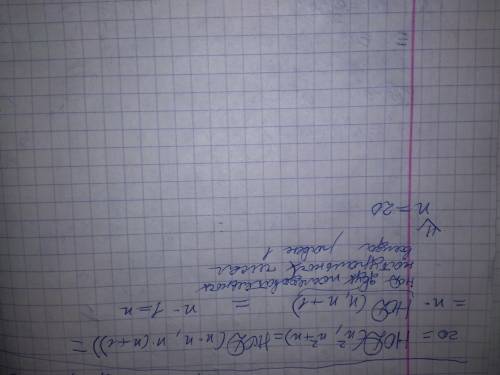 20 = НОД(n², n²+n) = НОД(n·n, n·(n+1)) =
= n · НОД(n, n+1) = n · 1 = n
НОД двух последовательных
натуральных чисел
всегда равен 1
⇓
n = 20